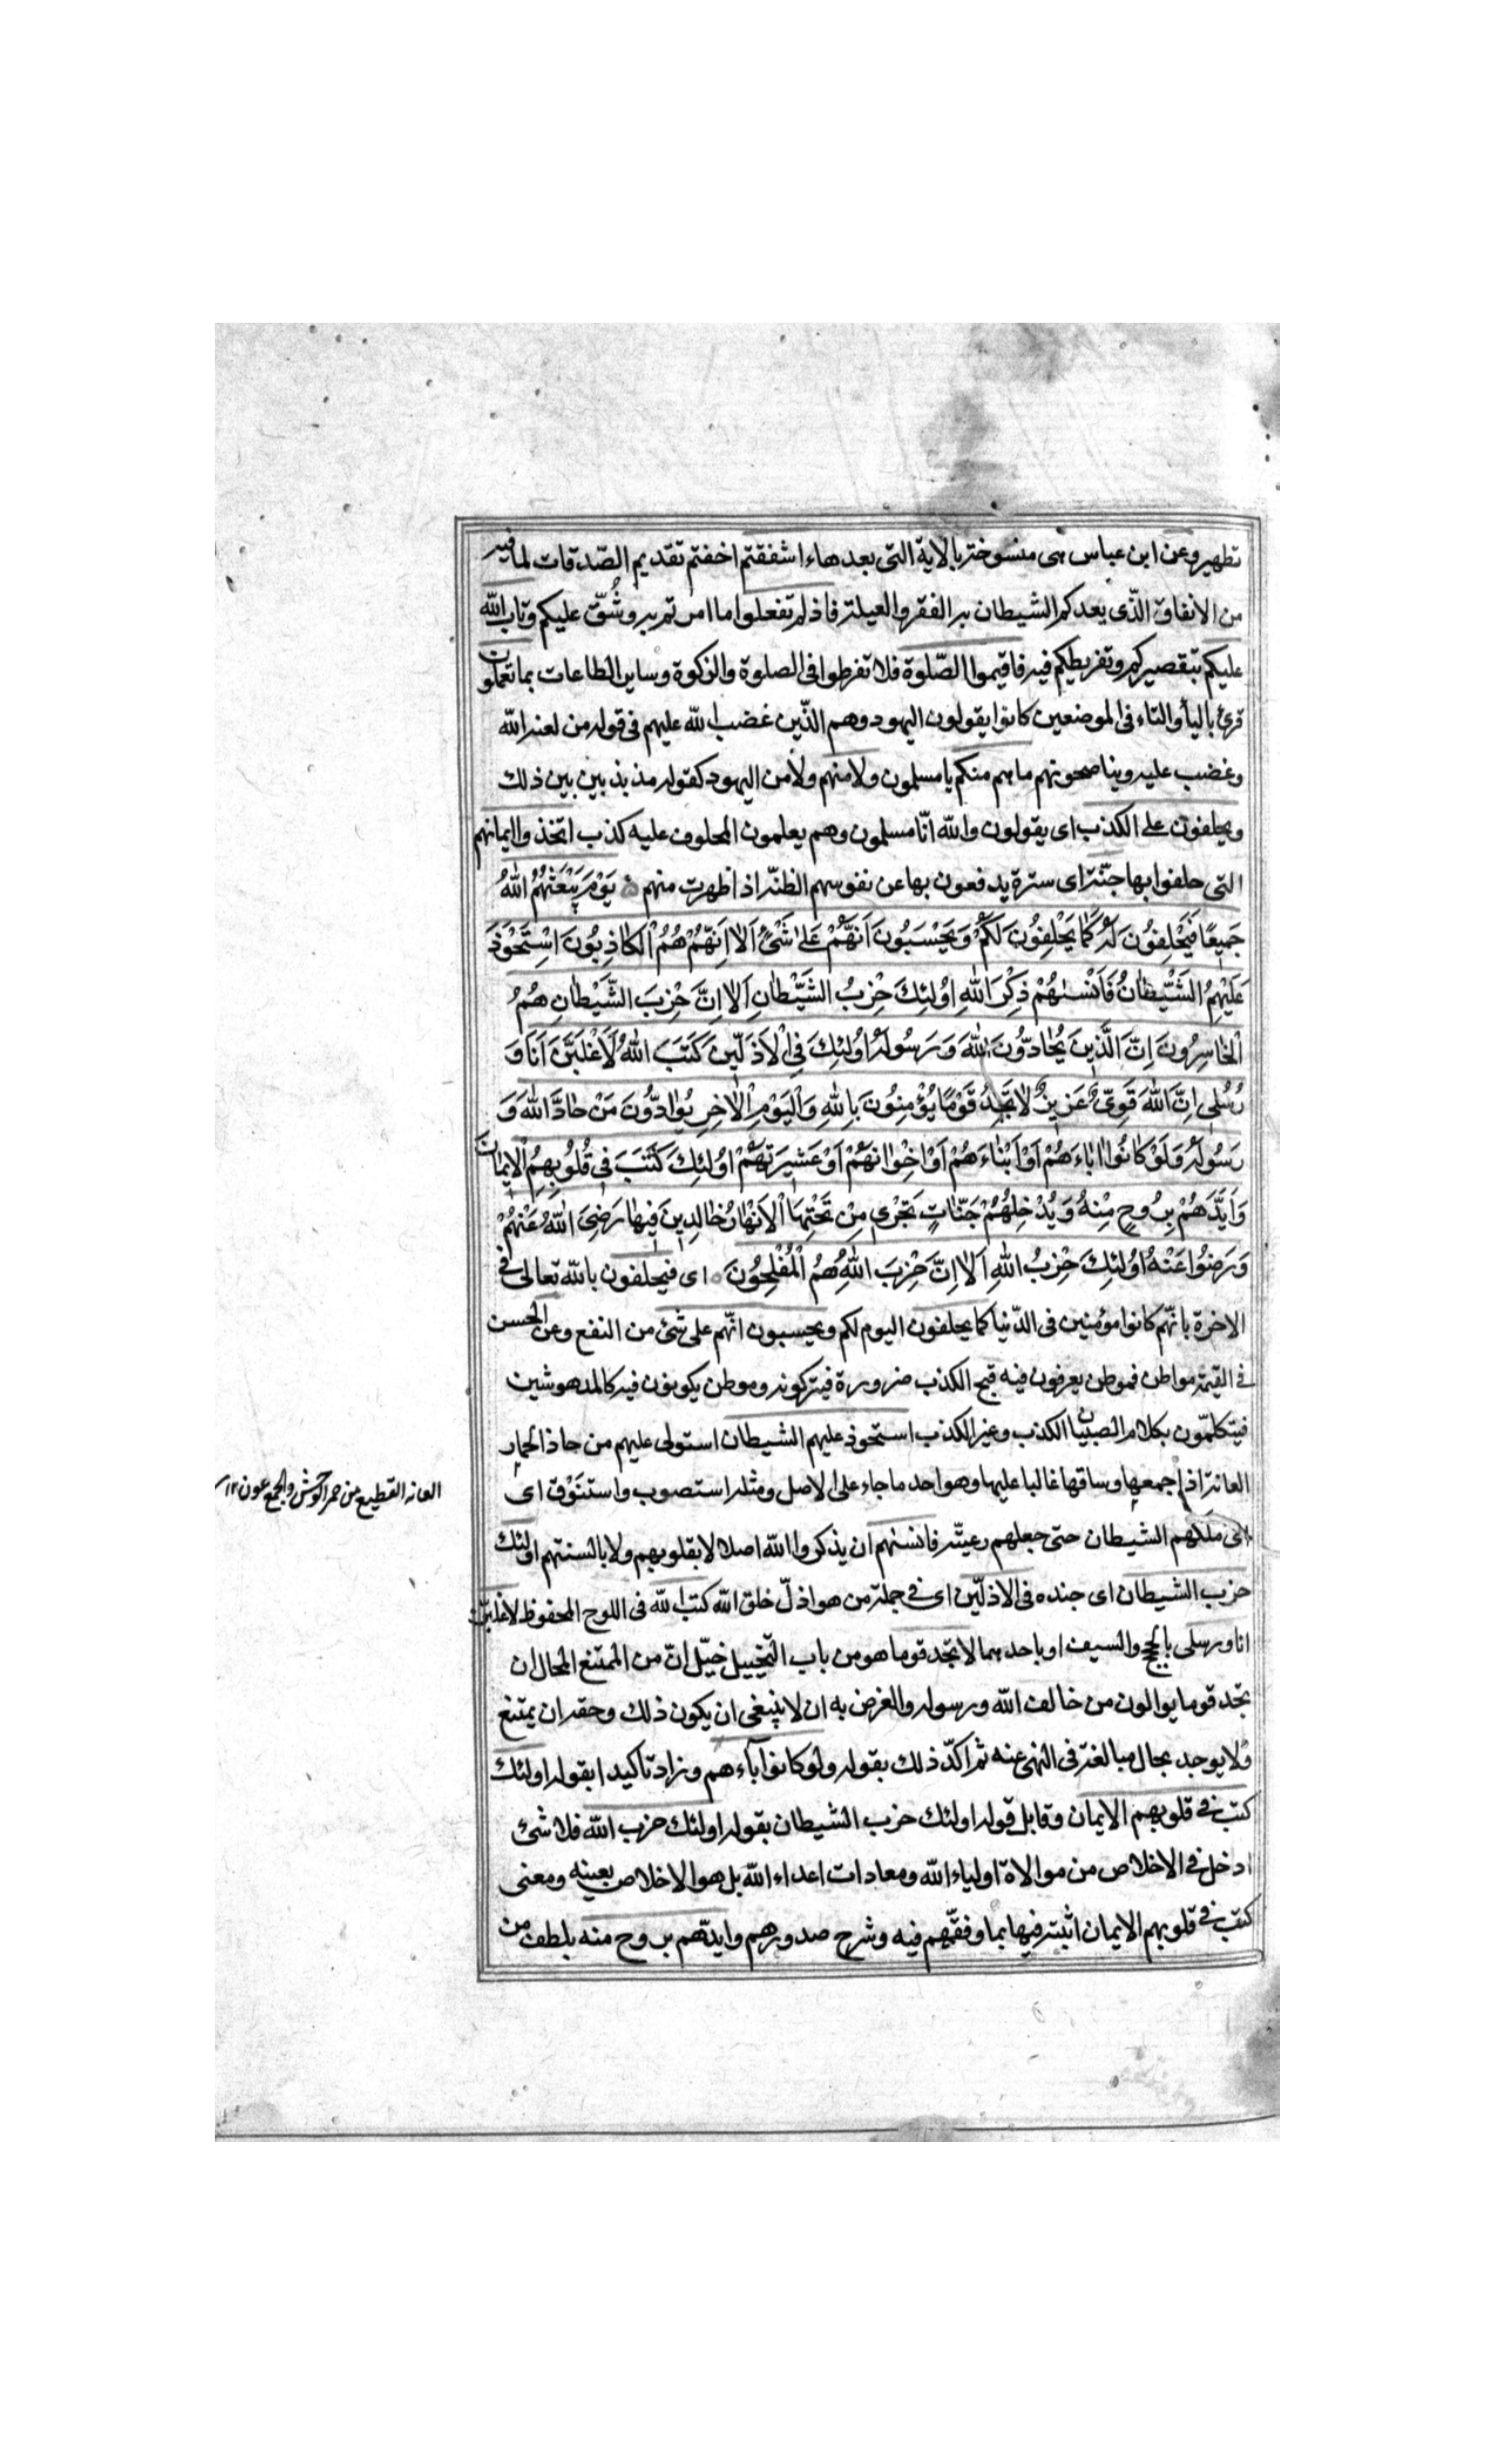 تطهير وعن ابن عباس هى منسوخة بالاية التى بعدها ءاشفقتم اخفتم تقديم الصّدقات لما فيه
من الانفاق الّذى يعدكم الشيطان به الفقر والعيلة فاذ لم تفعلوا ما امرتم به وشُقّ عليكم وتاب الله
عليكم بتقصيركم وتفريطكم فيه فاقيموا الصّلوة فلا تفرطوا فى الصلوة والزكوة وساير الطاعات بما تعملون
قرئ بالياء والتاء فى الموضعين كانوا يقولون اليهود وهم الذّين غضب الله عليهم فى قوله من لعنه الله
وغضب عليه ويناصحونهم ما هم منكم يا مسلمون ولا منهم ولا من اليهود كقوله مذبذبين بين ذلك
ويحلفون على الكذب اى يقولون والله انّا مسلمون وهم يعلمون المحلوف عليه كذب اتخذوا ايمانهم
التى حلفوا بها جنّة اى سترة يدفعون بها عن نفوسهم الظنّة اذا ظهرت منهم يَوْمَ يَبْعَثُهُمُ اللهُ
جَمِيعًا فَيَحْلِفُونَ لَهُ كَمَا يَحْلِفُونَ لَكُمْ وَيَحْسَبُونَ اَنَّهُمْ عَلىٰ شَىْءٍ اَلاٰ اِنَّهُمْ هُمُ الْكاٰذِبُونَ اسْتَحْوَذَ
عَلَيْهِمُ الشَّيْطاٰنُ فَاَنْسٰهُمْ ذِكْرَ اللهِ اُولٰئِكَ حِزْبُ الشَّيْطاٰنِ اَلاٰ اِنَّ حِزْبَ الشَّيْطاٰنِ هُمُ
الْخاٰسِرُونَ اِنَّ الَّذِينَ يُحاٰدُّونَ اللهَ وَرَسُولَهُ اُولٰئِكَ فِى الْاَذَلِّينَ كَتَبَ اللهُ لَاَغْلِبَنَّ اَنَا وَ
رُسُلِى اِنَّ اللهَ قَوِىٌّ عَزِيزٌ لاٰ تَجِدُ قَوْمًا يُؤْمِنُونَ بِاللهِ وَالْيَوْمِ الْاٰخِرِ يُوٰادُّونَ مَنْ حاٰدَّ اللهَ وَ
رَسُولَهُ وَلَوْ كاٰنُوا اٰباٰءَهُمْ اَوْ اَبْناٰءَهُمْ اَوْ اِخْوٰانَهُمْ اَوْ عَشِيرَتَهُمْ اُولٰئِكَ كَتَبَ فِى قُلُوبِهِمُ الْاِيماٰنَ
وَاَيَّدَهُمْ بِرُوحٍ مِنْهُ وَيُدْخِلُهُمْ جَنّاٰتٍ تَجْرِى مِنْ تَحْتِهَا الْاَنْهاٰرُ خاٰلِدِينَ فِيهاٰ رَضِىَ اللهُ عَنْهُمْ
وَرَضُوا عَنْهُ اُولٰئِكَ حِزْبُ اللهِ اَلاٰ اِنَّ حِزْبَ اللهِ هُمُ الْمُفْلِحُونَ اى فيحلفون بالله تعالى فى
الاخرة بانّهم كانوا مؤمنين فى الدّنيا كما يحلفون اليوم لكم ويحسبون انّهم على شئ من النفع وعن الحسن
فى القيمة مواطن فموطن يعرفون فيه قبح الكذب ضرورة فيتركونه وموطن يكونون فيه كالمدهوشين
فيتكلمّون بكلام الصبيان الكذب وغير الكذب استحوذ عليهم الشيطان استولى عليهم من حاذ الحمار
العانة اذا جمعها وساقها غالبا عليها وهو احد ما جاء على الاصل ومثله استصوب واستنَوْق اى
ملكهم الشيطان حتى جعلهم رعيّته فانسٰهم ان يذكروا الله اصلا لا بقلوبهم ولا بالسنتهم اولئك
حزب الشيطان اى جنده فى الاذلّين اى فى جملة من هو اذلّ خلق الله كتب الله فى اللوح المحفوظ لاغلبنّ
انا ورسلى بالحجج والسيف او باحدهما لا تجد قوما هو من باب التخييل خيّل انّ من الممتنع المحال ان
تجد قوما يوالون من خالف الله ورسوله والغرض به ان لا ينبغى ان يكون ذلك وحقه ان يمتنع
ولا يوجد بحال مبالغة فى النهى عنه ثم اكدّ ذلك بقوله ولو كانوا آباءهم وزاد تاكيدا بقوله اولئك
كتب فى قلوبهم الايمان وقابل قوله اولئك حزب الشيطان بقوله اولئك حزب الله فلا شئ
ادخل فى الاخلاص من موالاة اولياء الله ومعادات اعداء الله بل هو الاخلاص بعينه ومعنى
كتب فى قلوبهم الايمان اثبته فيها بما وفقّهم فيه وشرح صدورهم وايدّهم بروح منه بلطف من
العانه القطيع من حمر الوحش والجمع عون ١٢